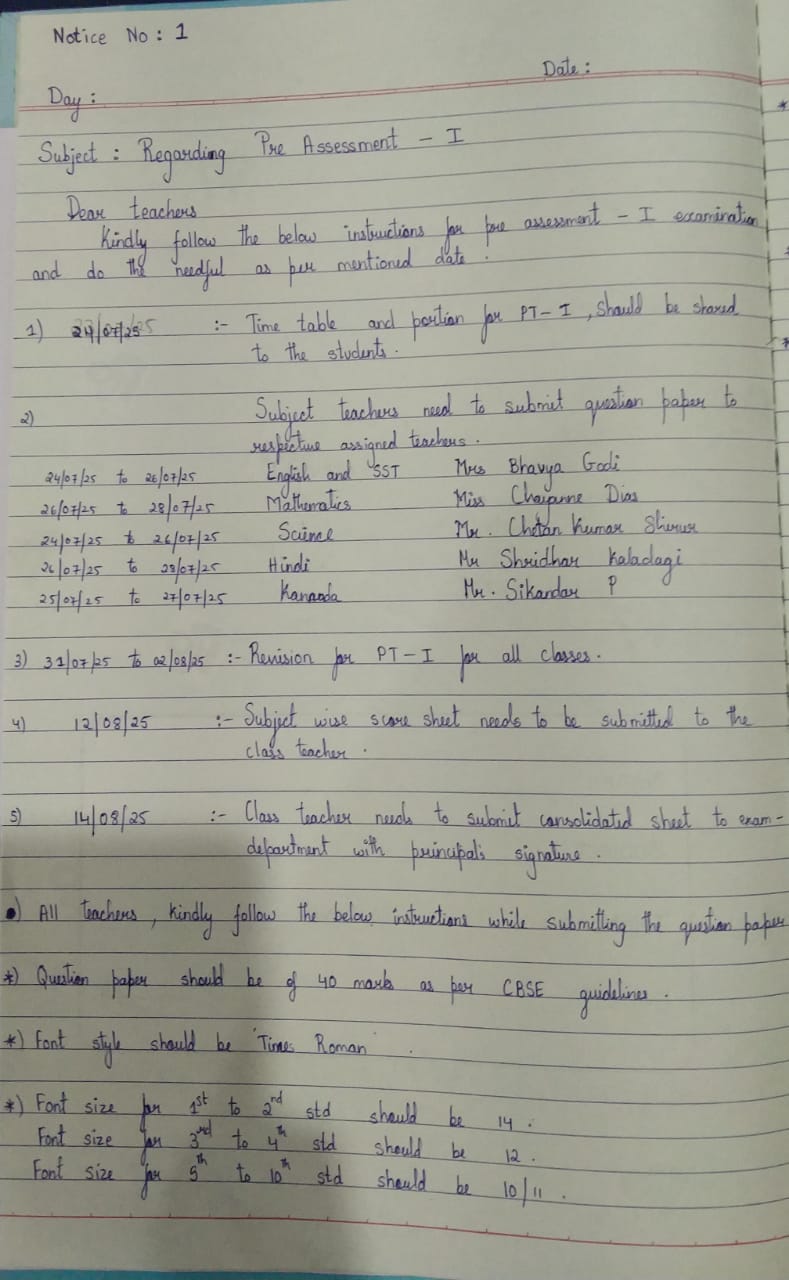 Notice No : 1
Date :
Day :
Subject : Regarding Pre Assessment - I
Dear teachers
Kindly follow the below instructions for pre assessment - I examination
and do the needful as per mentioned date .
1) /07/25 :- Time table and portion for PT-I , Should be shared
to the students .
2) Subject teachers need to submit question paper to
respective assigned teachers .
24/07/25 to 26/07/25 English and SST Mrs Bhavya Godi
26/07/25 to 28/07/25 Mathematics Miss Chayanne Dias
24/07/25 to 26/07/25 Science Mr. Chetan Kumar Shirur
26/07/25 to 28/07/25 Hindi Mr Shridhar Kaladagi
25/07/25 to 27/07/25 Kannada Mr. Sikandar P
3) 31/07/25 to 02/08/25 :- Revision for PT-I for all classes .
4) 12/08/25 :- Subject wise score sheet needs to be submitted to the
class teacher .
5) 14/08/25 :- Class teacher needs to submit consolidated sheet to exam-
department with principals signature .
•) All teachers , Kindly follow the below instructions while submitting the question paper
*) Question paper should be of 40 marks as per CBSE guidelines .
*) Font style should be 'Times Roman' .
*) Font size for 1st to 2nd std should be 14 .
Font size for 3rd to 4th std should be 12 .
Font size for 5th to 10th std should be 10/11 .